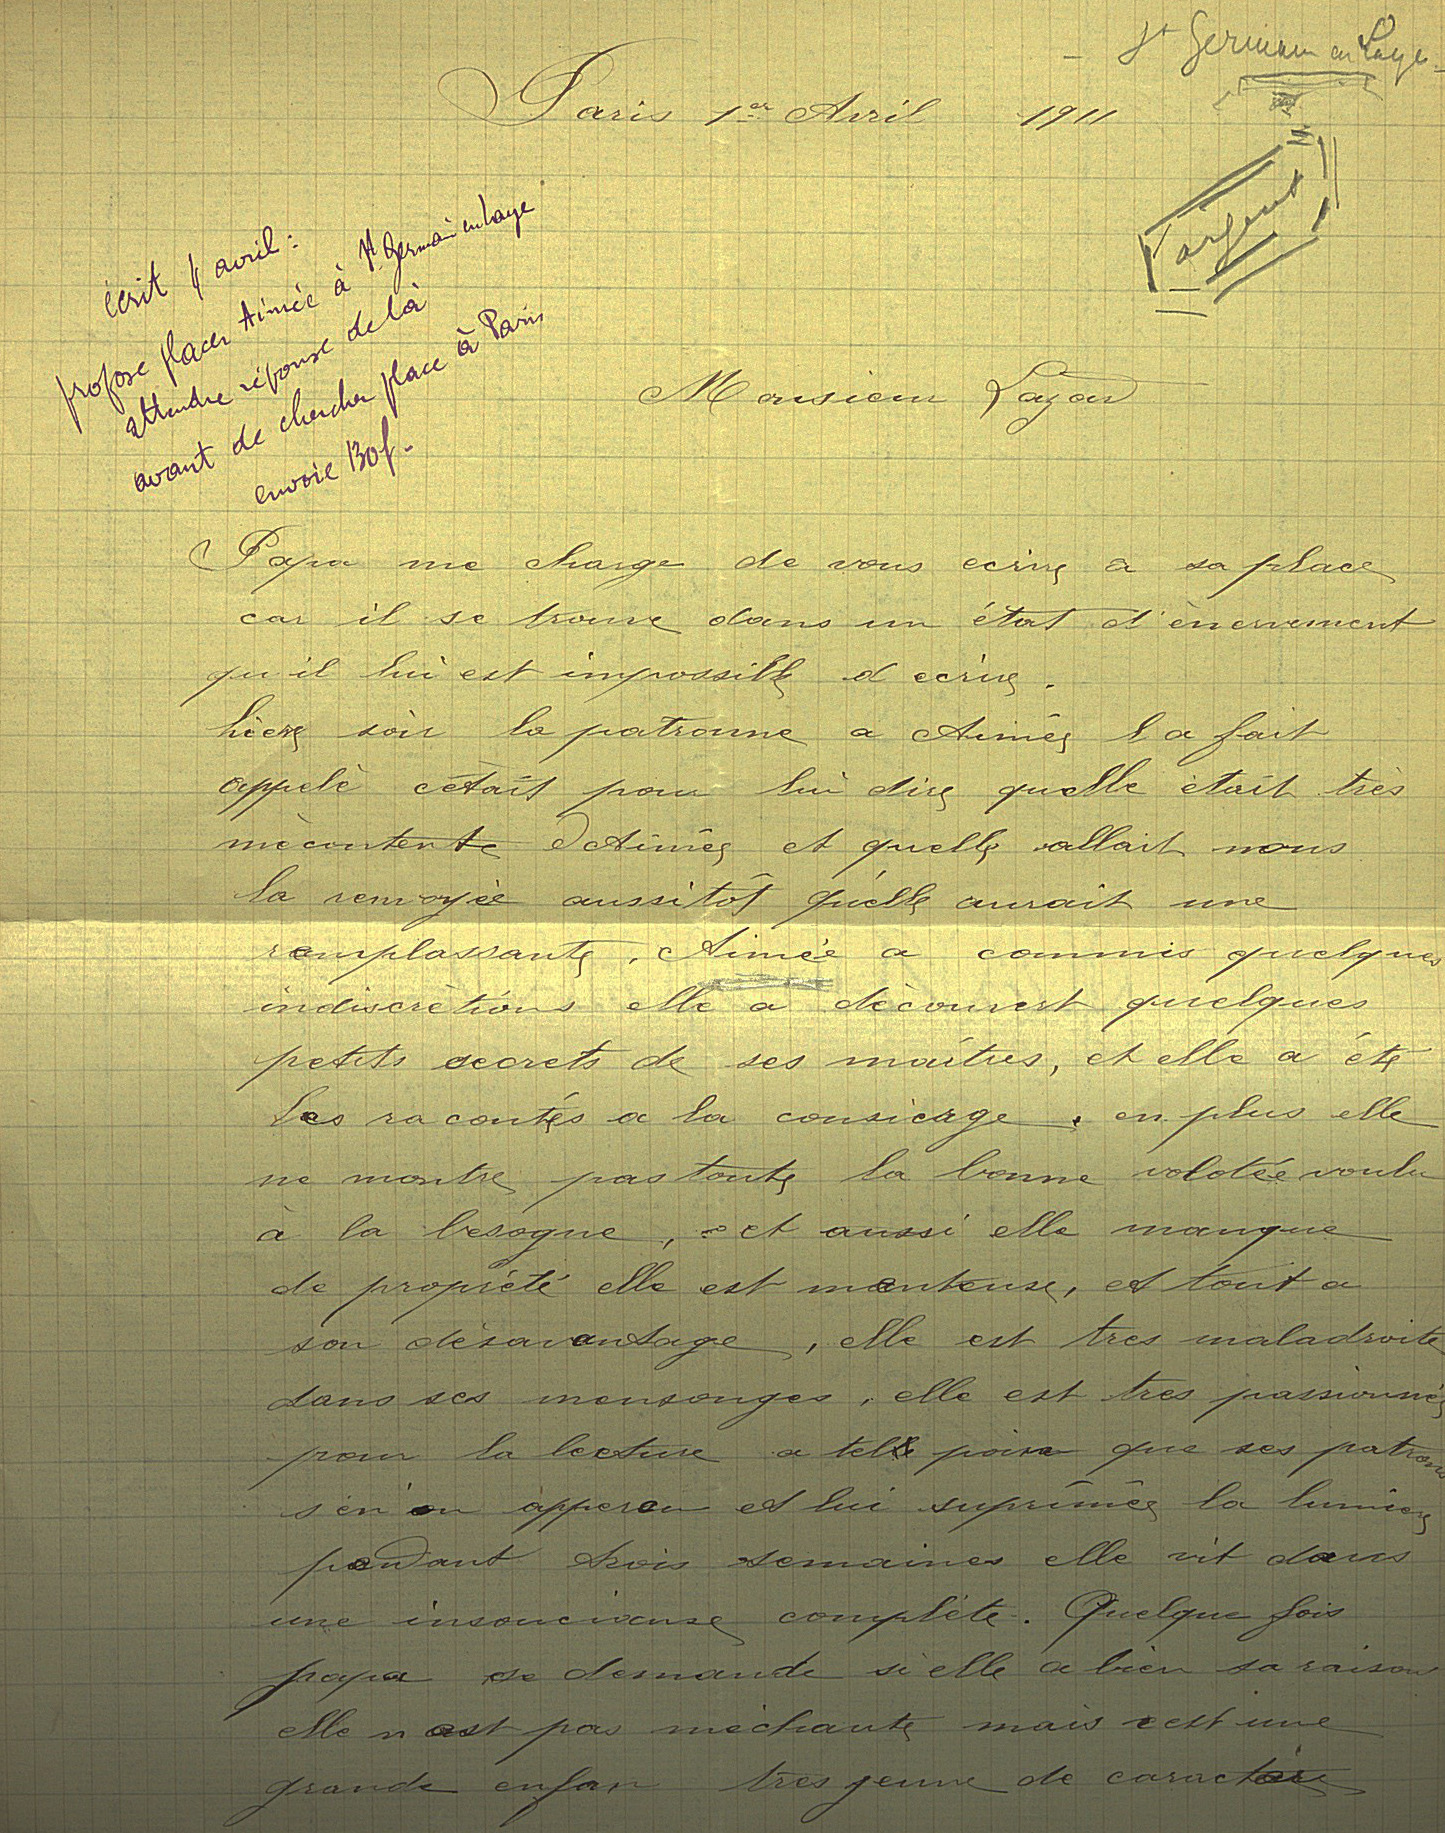 - St Germain en Laye -
Paris 1er Avril 1911
argent
écrit 4 avril :
propose placer Aimée à St Germain en Laye
attendre réponse de là
avant de chercher place à Paris
envoie 130f.
Monsieur Lazard
Papa me charge de vous ecrire a sa place
car il se trouve dans un état d'ènervement
qu'il lui est impossible d ecrire.
hiere soir la patronne a Aimée l a fait
appelè cétait pour lui dire quelle était très
mècontente d'Aimée et quelle allait nous
la renvoyée aussitôt qu'elle aurait une
remplassante, Aimée a commis quelques
indiscrètions elle a dècouvert quelques
petits secrets de ses maîtres, et elle a été
les racontés a la consierge, en plus elle
ne montre pas toute la bonne volotée voulu
à la besogne, et aussi elle manque
de propriété elle est menteuse, et tout a
son désavantage, elle est tres maladroite
dans ses mensonges, elle est tres passionnée
pour la lecture a tel poin que ses patrons
s'en on apperçu et lui suprimée la lumiere
pendant trois semaines elle vit dans
une insouciance complète. Quelque fois
papa se demande si elle a bien sa raison
elle n est pas mèchante mais c est une
grande enfan tres jeune de caractère